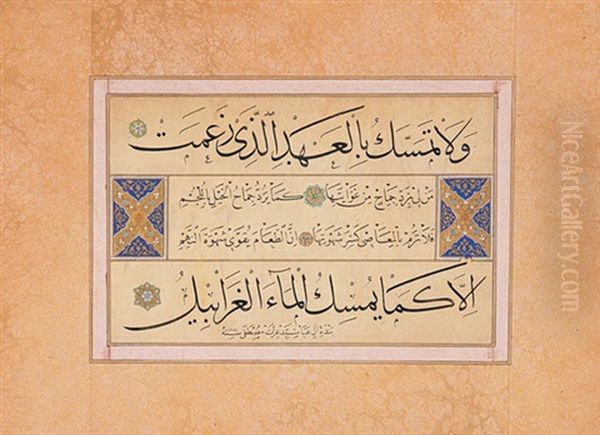 ولا تمسك بالعهد الذي زعمت
من لي برد جماح من غوايتها كما يرد جماح الخيل باللجم
فلا ترم بالمعاصي كسر شهوتها ان الطعام يقوي شهوة النهم
الا كما يمسك الماء الغرابيل
بنده آل عبا سيد عزت مصطفى
NiceArtGallery.com